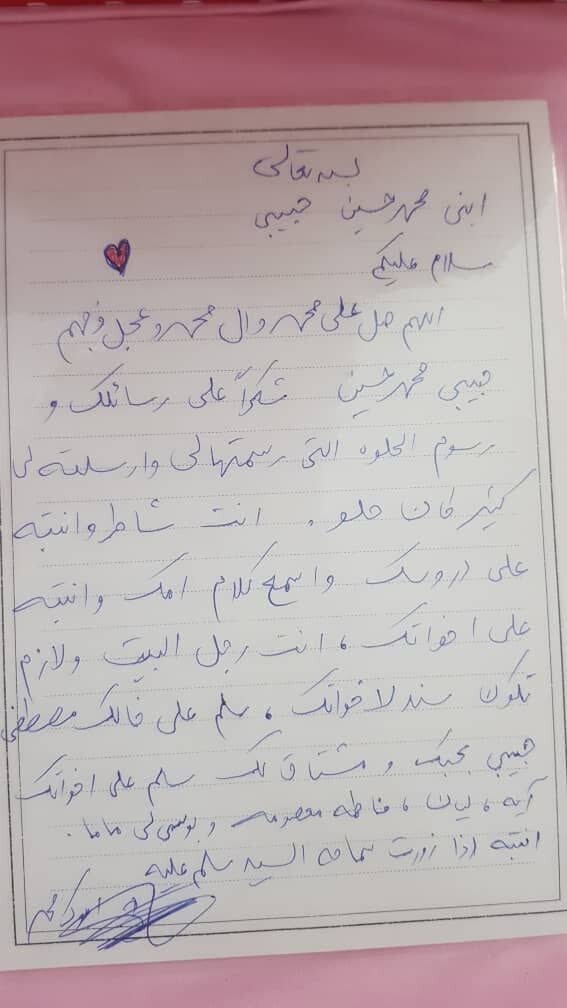 بسمه تعالى
ابني محمد حسين حبيبي
سلام عليكم
اللهم صل على محمد وال محمد وعجل فرجهم
حبيبي محمد حسين شكراً على رسائلك و
رسوم الحلوه التي رسمتها لي وارسلته لي
كثير كان حلو. انت شاطر وانتبه
على دروسك واسمع كلام امك وانتبه
على اخواتك، انت رجل البيت ولازم
تكون سند لاخواتك، سلم على خالك مصطفى
حبيبي بحبك و مشتاق لك سلم على اخواتك
آيه، ليان، فاطمه معصومه و بوسي لي ماما.
انتبه اذا زورت سماحه السيد سلم عليه